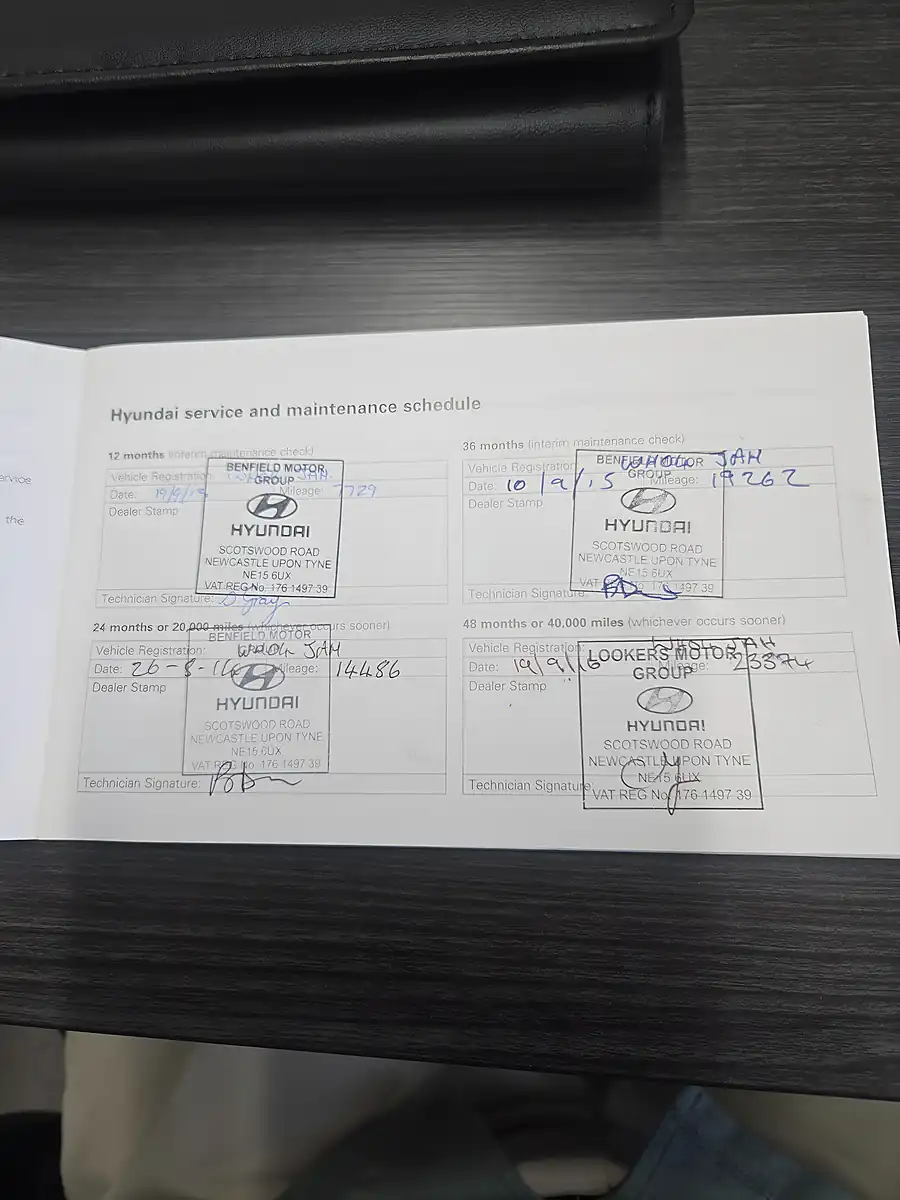 ervice
the
Hyundai service and maintenance schedule
12 months (interim maintenance check)
Vehicle Registration: JAH
Date: 19/9/13 Mileage: 7729
Dealer Stamp
BENFIELD MOTOR
GROUP
HYUNDAI
SCOTSWOOD ROAD
NEWCASTLE UPON TYNE
NE15 6UX
VAT REG No. 176 1497 39
Technician Signature:
24 months or 20,000 miles (whichever occurs sooner)
Vehicle Registration: JAH
Date: 26-8-14 Mileage: 14486
Dealer Stamp
BENFIELD MOTOR
HYUNDAI
SCOTSWOOD ROAD
NEWCASTLE UPON TYNE
NE15 6UX
VAT REG No. 176 1497 39
Technician Signature:
36 months (interim maintenance check)
Vehicle Registration JAH
Date: 10/9/15 Mileage: 19262
Dealer Stamp
BENFIELD MOTOR
GROUP
HYUNDAI
SCOTSWOOD ROAD
NEWCASTLE UPON TYNE
NE15 6UX
VAT 176 1497 39
Technician Signature:
48 months or 40,000 miles (whichever occurs sooner)
Vehicle Registration JAH
Date: 19/9/16 Mileage: 23374
Dealer Stamp
LOOKERS MOTOR
GROUP
HYUNDAI
SCOTSWOOD ROAD
NEWCASTLE UPON TYNE
NE15 6UX
VAT REG No. 176 1497 39
Technician Signature